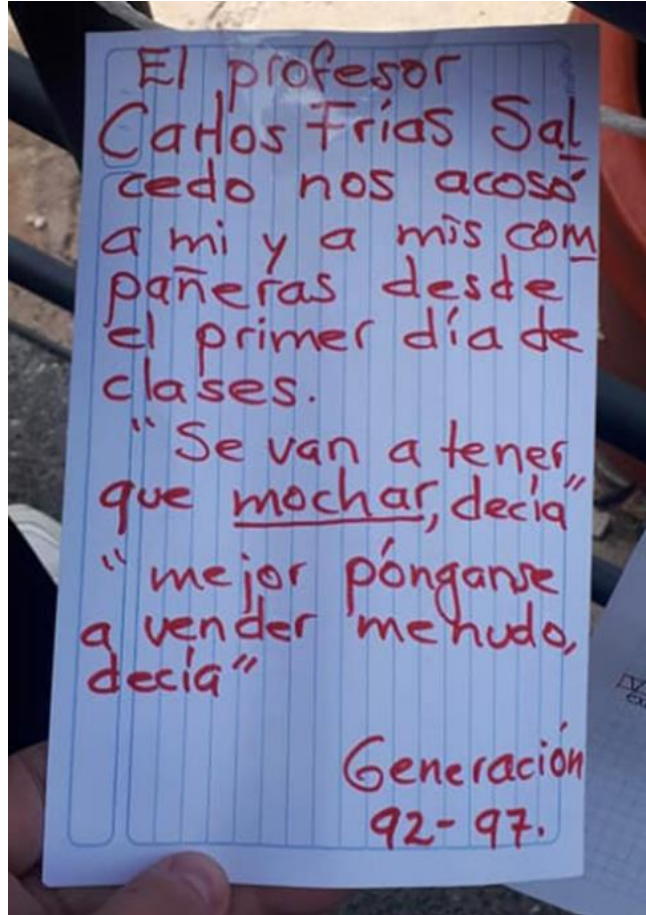 El profesor
Carlos Frías Sal
cedo nos acosó
a mi y a mis com
pañeras desde
el primer día de
clases.
"Se van a tener
que mochar, decía"
"mejor pónganse
a vender menudo,
decía"
Generación
92-97.